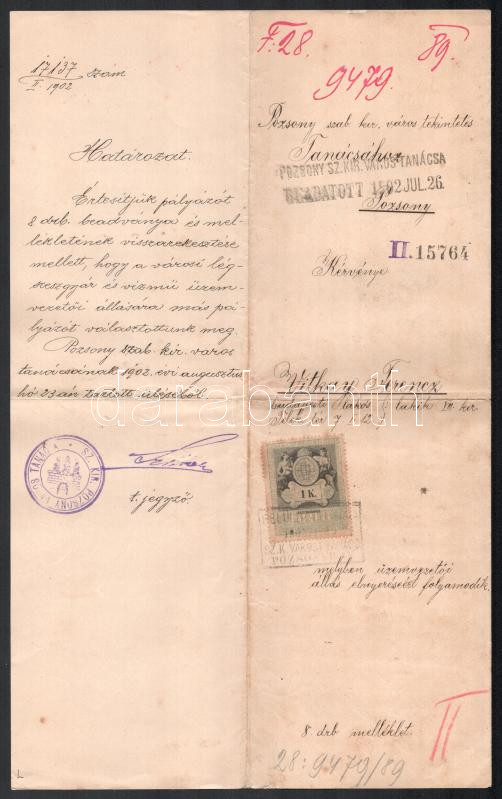 17137 szám
II. 1902
Határozat.
Értesitjük pályázót
8 drb. beadványa és mel-
lékletének visszarekesztése
mellett, hogy a városi lég-
szeszgyár és vizmű üzem-
vezetői állására más pá-
lyázót választottunk meg.
Pozsony szab. kir. város
tanácsának 1902. évi augusztus
hó 23 án tartott üléséből.
t. jegyző.
F. 28. 89.
9479.
Pozsony szab. kir. város tekintetes
Tanácsához
POZSONY SZ. KIR. VÁROS TANÁCSA
BEADATOTT 1902 JUL. 26.
Pozsony
II. 15764
Kérvénye
Vithay Ferencz
1 K.
melyben üzemvezetői
állás elnyeréseért folyamodik.
8. drb melléklet.
II
28:9479/89
darabanth